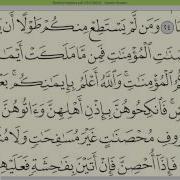 ٢٤ وَمَن لَّمْ يَسْتَطِعْ مِنكُمْ طَوْلًا أَن
ٱلْمُؤْمِنَٰتِ فَمِن مَّا مَلَكَتْ أَيْمَٰ
ٱلْمُؤْمِنَٰتِ وَٱللَّهُ أَعْلَمُ بِإِيمَٰنِكُم بَعْ
فَٱنكِحُوهُنَّ بِإِذْنِ أَهْلِهِنَّ وَءَاتُوهُنَّ
رُوفِ مُحْصَنَٰتٍ غَيْرَ مُسَٰفِحَٰتٍ وَلَا
فَإِذَآ أُحْصِنَّ فَإِنْ أَتَيْنَ بِفَٰحِشَةٍ فَعَلَيْهِ